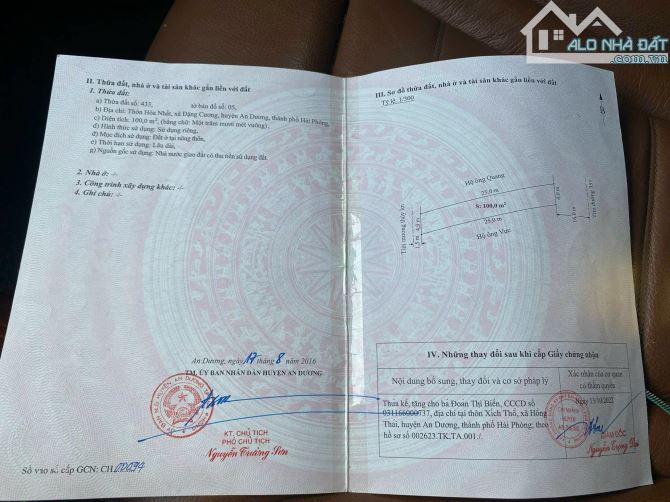 ALO NHÀ ĐẤT
II. Thửa đất, nhà ở và tài sản khác gắn liền với đất
1. Thửa đất:
a) Thửa đất số: 433, tờ bản đồ số: 05,
b) Địa chỉ: Thôn Hòa Nhất, xã Đặng Cương, huyện An Dương, thành phố Hải Phòng,
c) Diện tích: 100,0 m², (bằng chữ: Một trăm mươi mét vuông),
d) Hình thức sử dụng: Sử dụng riêng,
đ) Mục đích sử dụng: Đất ở tại nông thôn,
e) Thời hạn sử dụng: Lâu dài,
g) Nguồn gốc sử dụng: Nhà nước giao đất có thu tiền sử dụng đất.
2. Nhà ở: -/-
3. Công trình xây dựng khác: -/-
4. Ghi chú: -/-
An Dương, ngày 17 tháng 8 năm 2016
TM. ỦY BAN NHÂN DÂN HUYỆN AN DƯƠNG
KT. CHỦ TỊCH
PHÓ CHỦ TỊCH
Nguyễn Trường Sơn
Số vào sổ cấp GCN: CH
III. Sơ đồ thửa đất, nhà ở và tài sản khác gắn liền với đất
Tỷ lệ: 1/300
Hộ ông Quang
25,0 m
S: 100,0 m²
25,0 m
Hộ ông Vực
Tim mương thủy lợi
1,5 m
4,0 m
4,0 m
IV. Những thay đổi sau khi cấp Giấy chứng nhận
Nội dung bổ sung, thay đổi và cơ sở pháp lý
Xác nhận của cơ quan
có thẩm quyền
Thừa kế, tặng cho bà Đoàn Thị Biển, CCCD số
031166000737, địa chỉ tại thôn Xích Thổ, xã Hồng
Thái, huyện An Dương, thành phố Hải Phòng; theo
hồ sơ số 002623.TK.TA.001./.